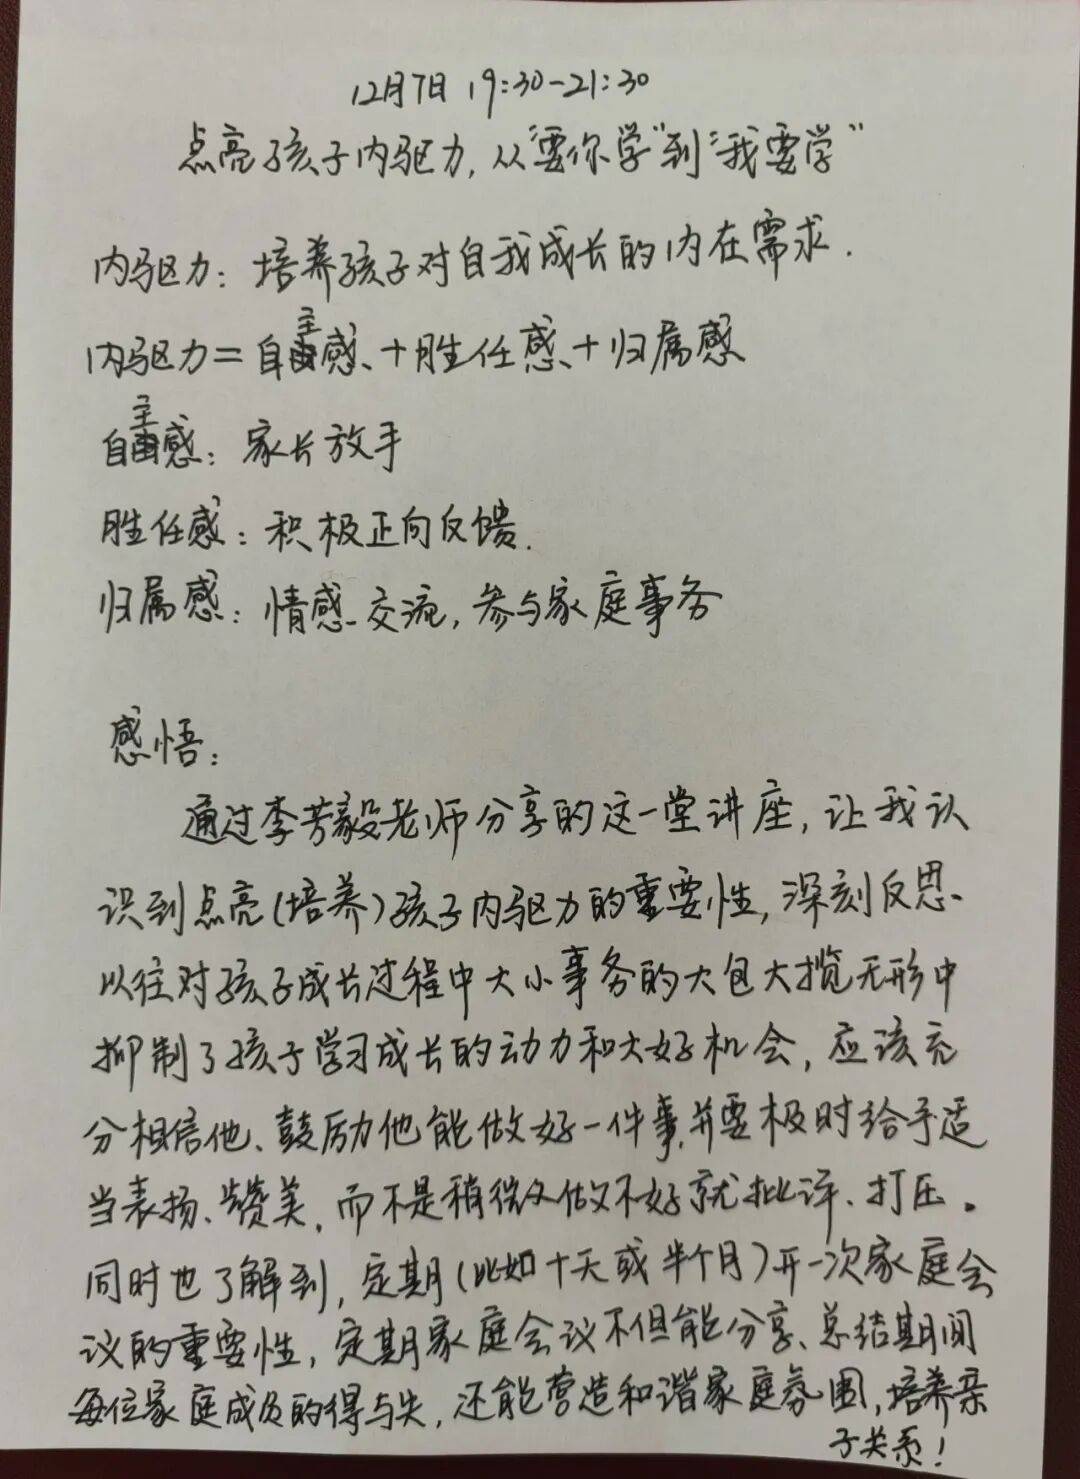 12月7日 19:30-21:30
点亮孩子内驱力,从“要你学”到“我要学”
内驱力：培养孩子对自我成长的内在需求.
内驱力=自主感+胜任感+归属感
自主感：家长放手
胜任感：积极正向反馈.
归属感：情感交流,参与家庭事务
感悟：
通过李芳毅老师分享的这一堂讲座,让我认
识到点亮(培养)孩子内驱力的重要性,深刻反思、
以往对孩子成长过程中大小事务的大包大揽无形中
抑制了孩子学习成长的动力和大好机会,应该充
分相信他、鼓励他能做好一件事,并要极时给予适
当表扬、赞美,而不是稍微做不好就批评、打压。
同时也了解到,定期(比如十天或半个月)开一次家庭会
议的重要性,定期家庭会议不但能分享、总结期间
每位家庭成员的得与失,还能营造和谐家庭氛围,培养亲
子关系!